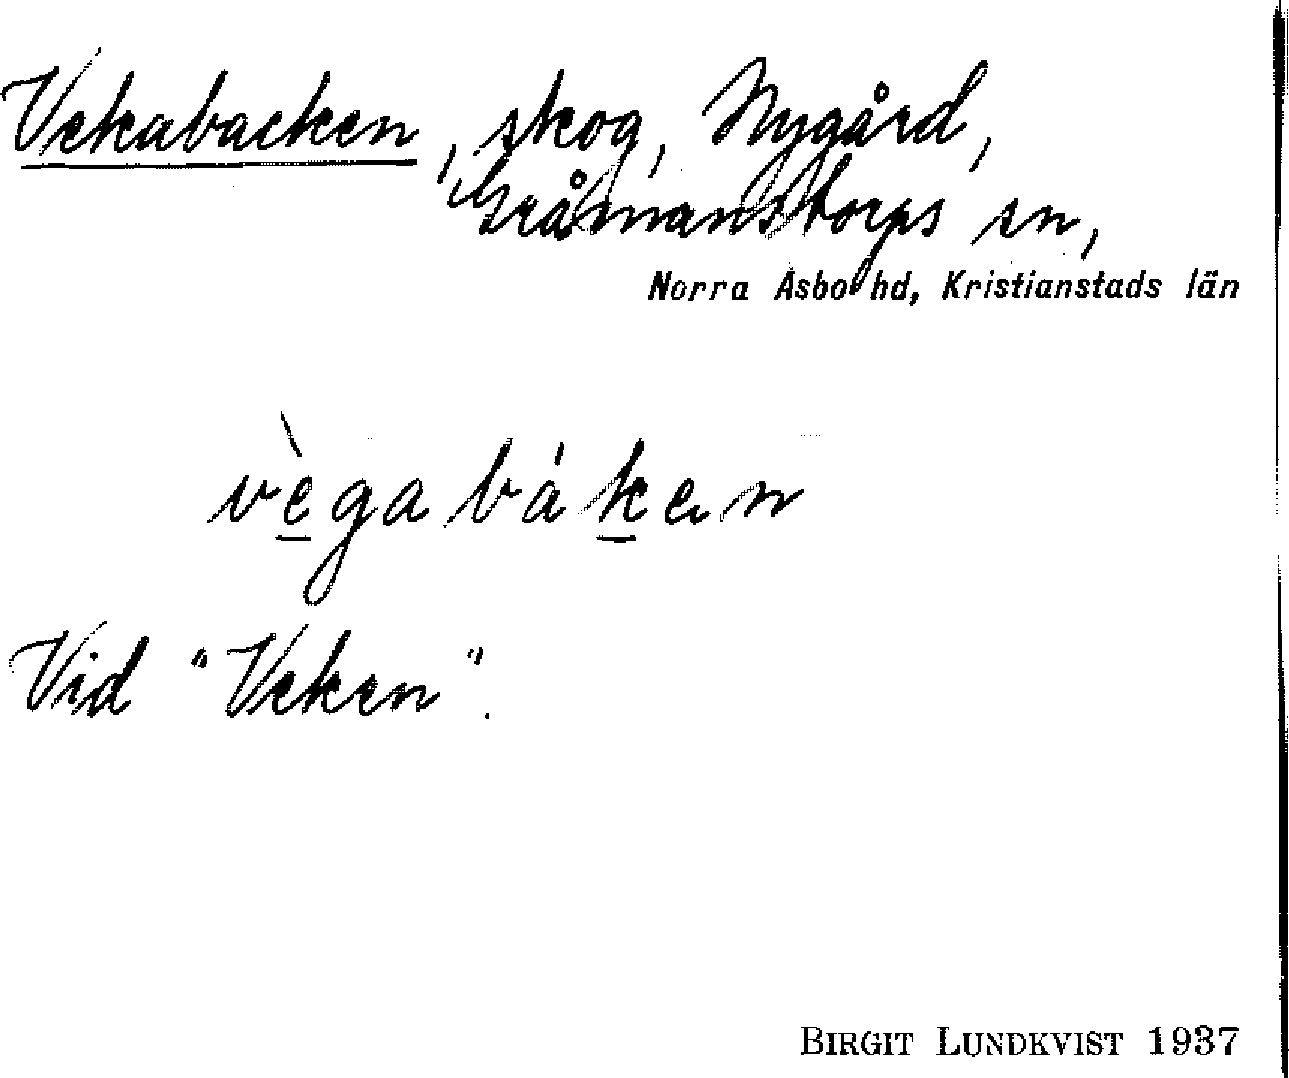 Vekabacken, skog, Nygård,
Gråmanstorps sn,
Norra Åsbo hd, Kristianstads län
vègabáken
Vid "Veken".
BIRGIT LUNDKVIST 1937